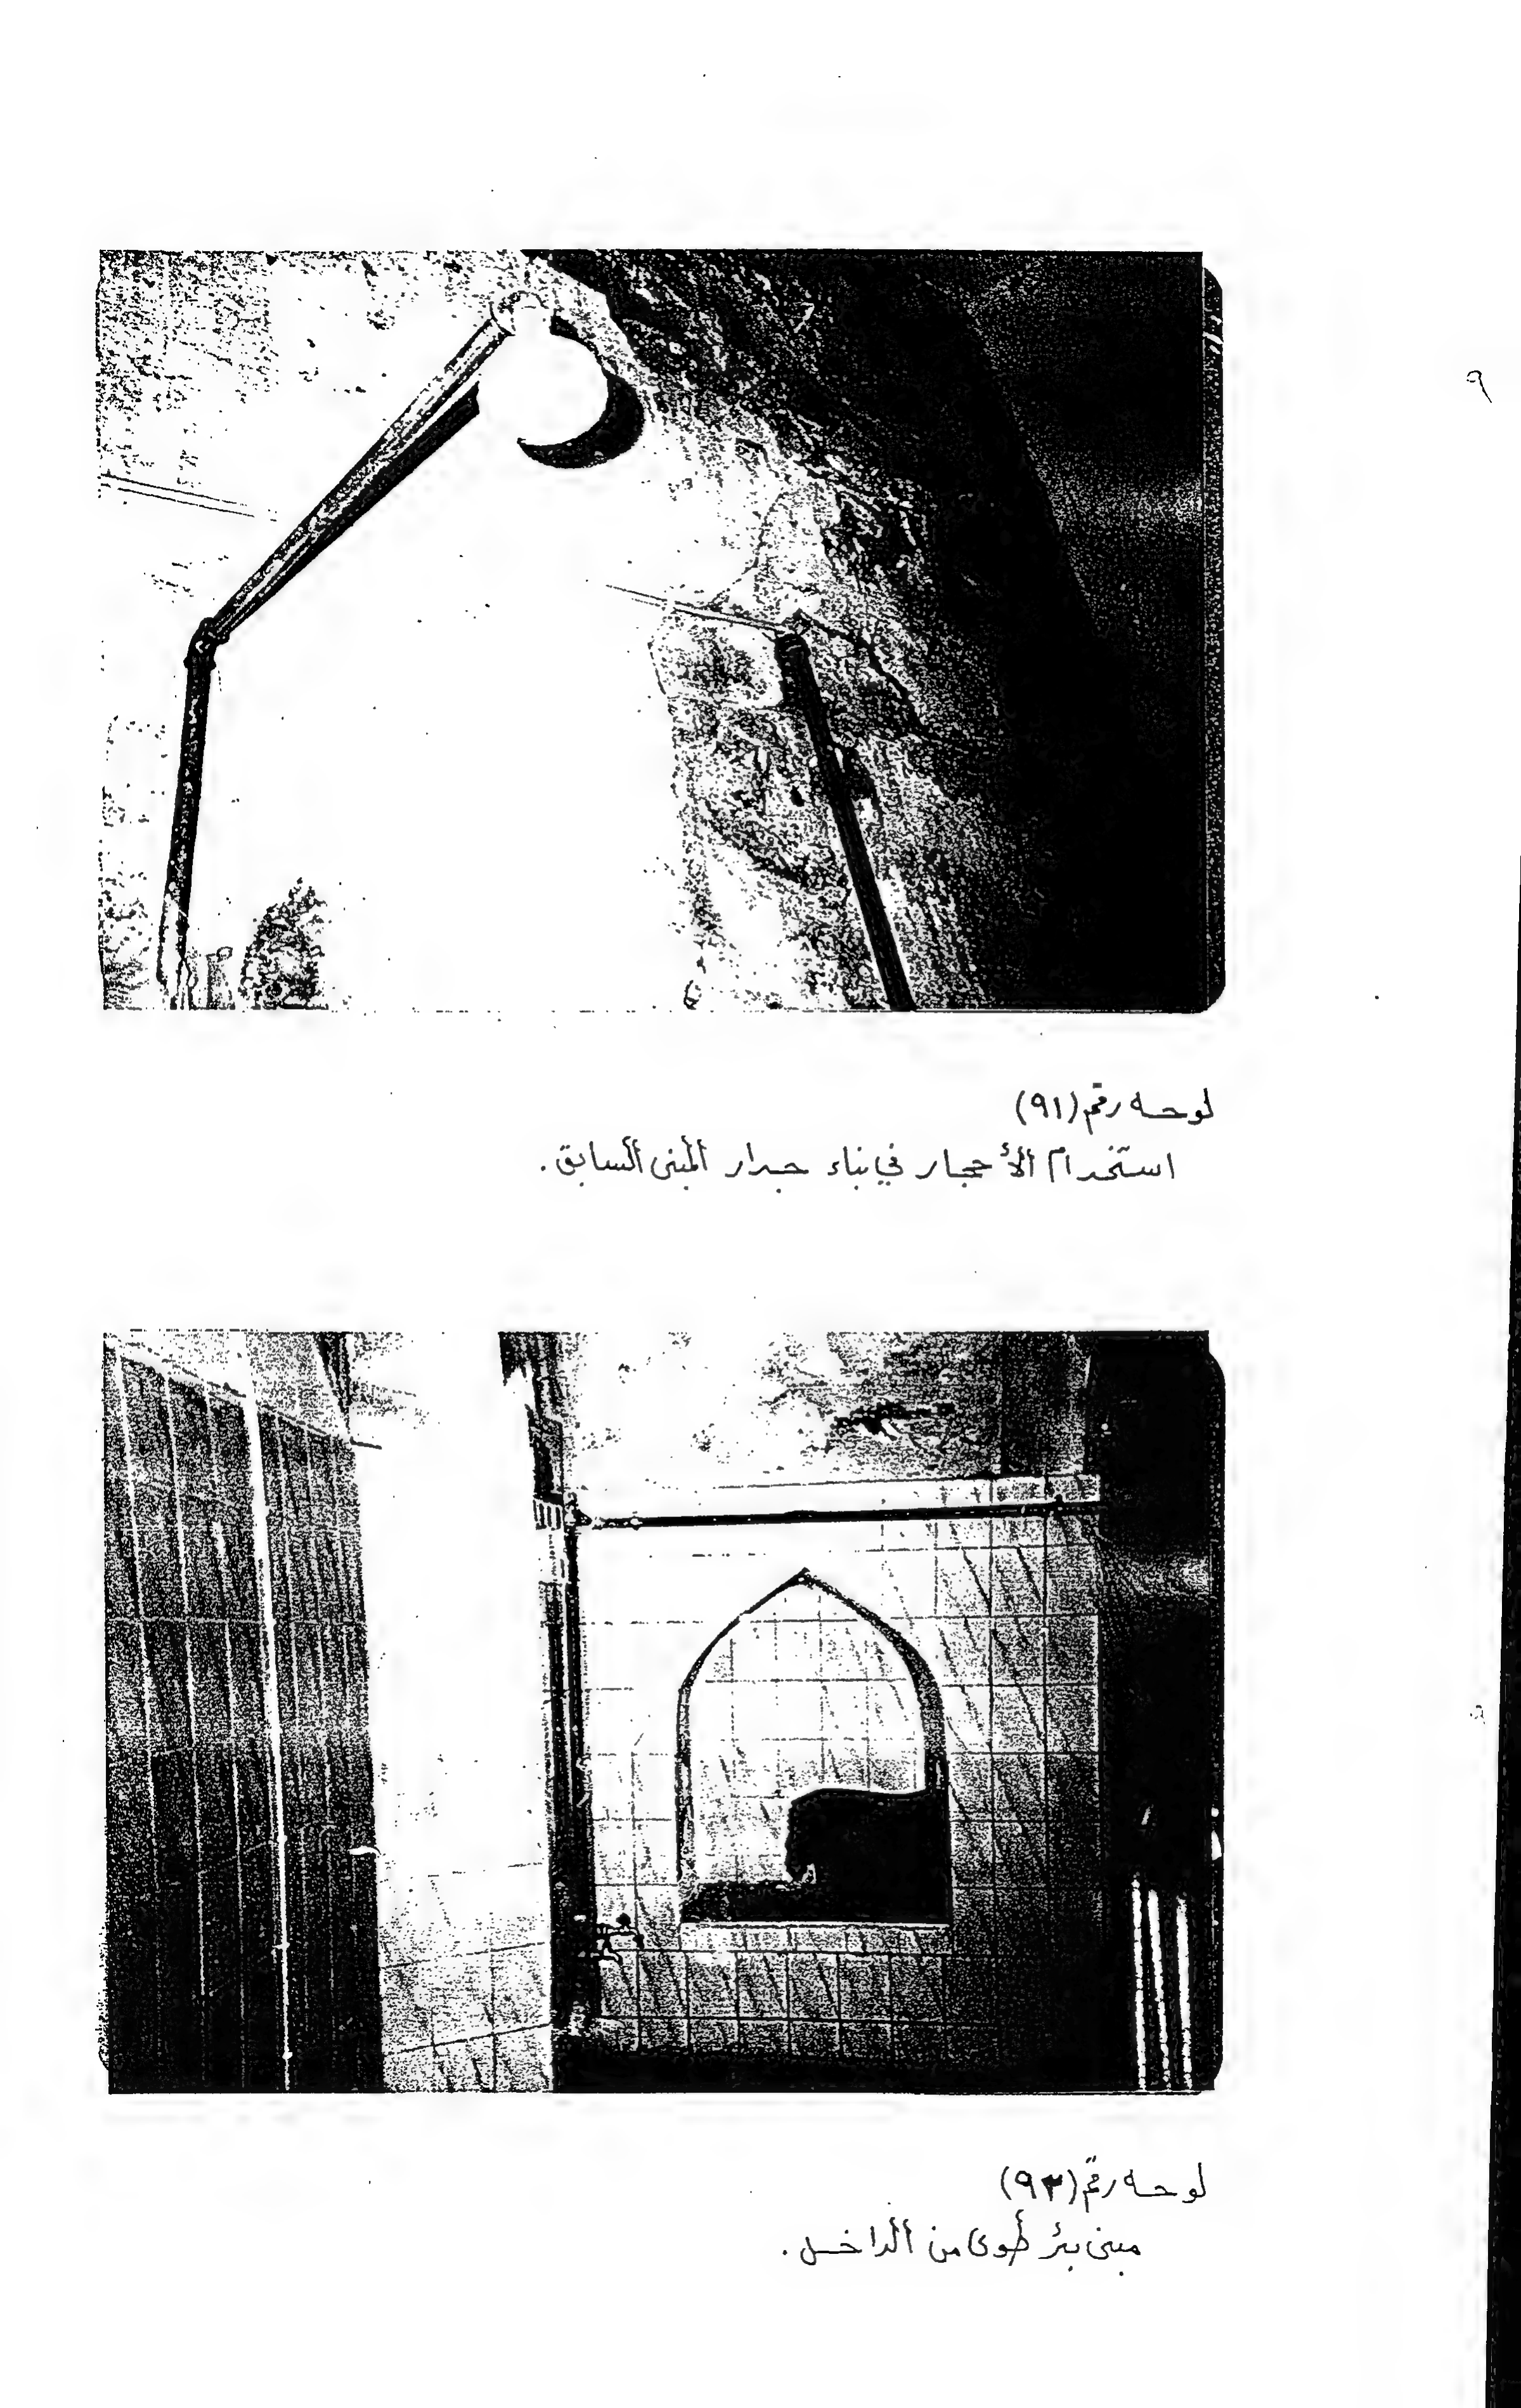 لوحه رقم (٩١)
استخدام الأحجار في بناء جدار المبنى السابق .
لوحه رقم (٩٢)
مبنى بئر طوى من الداخل .